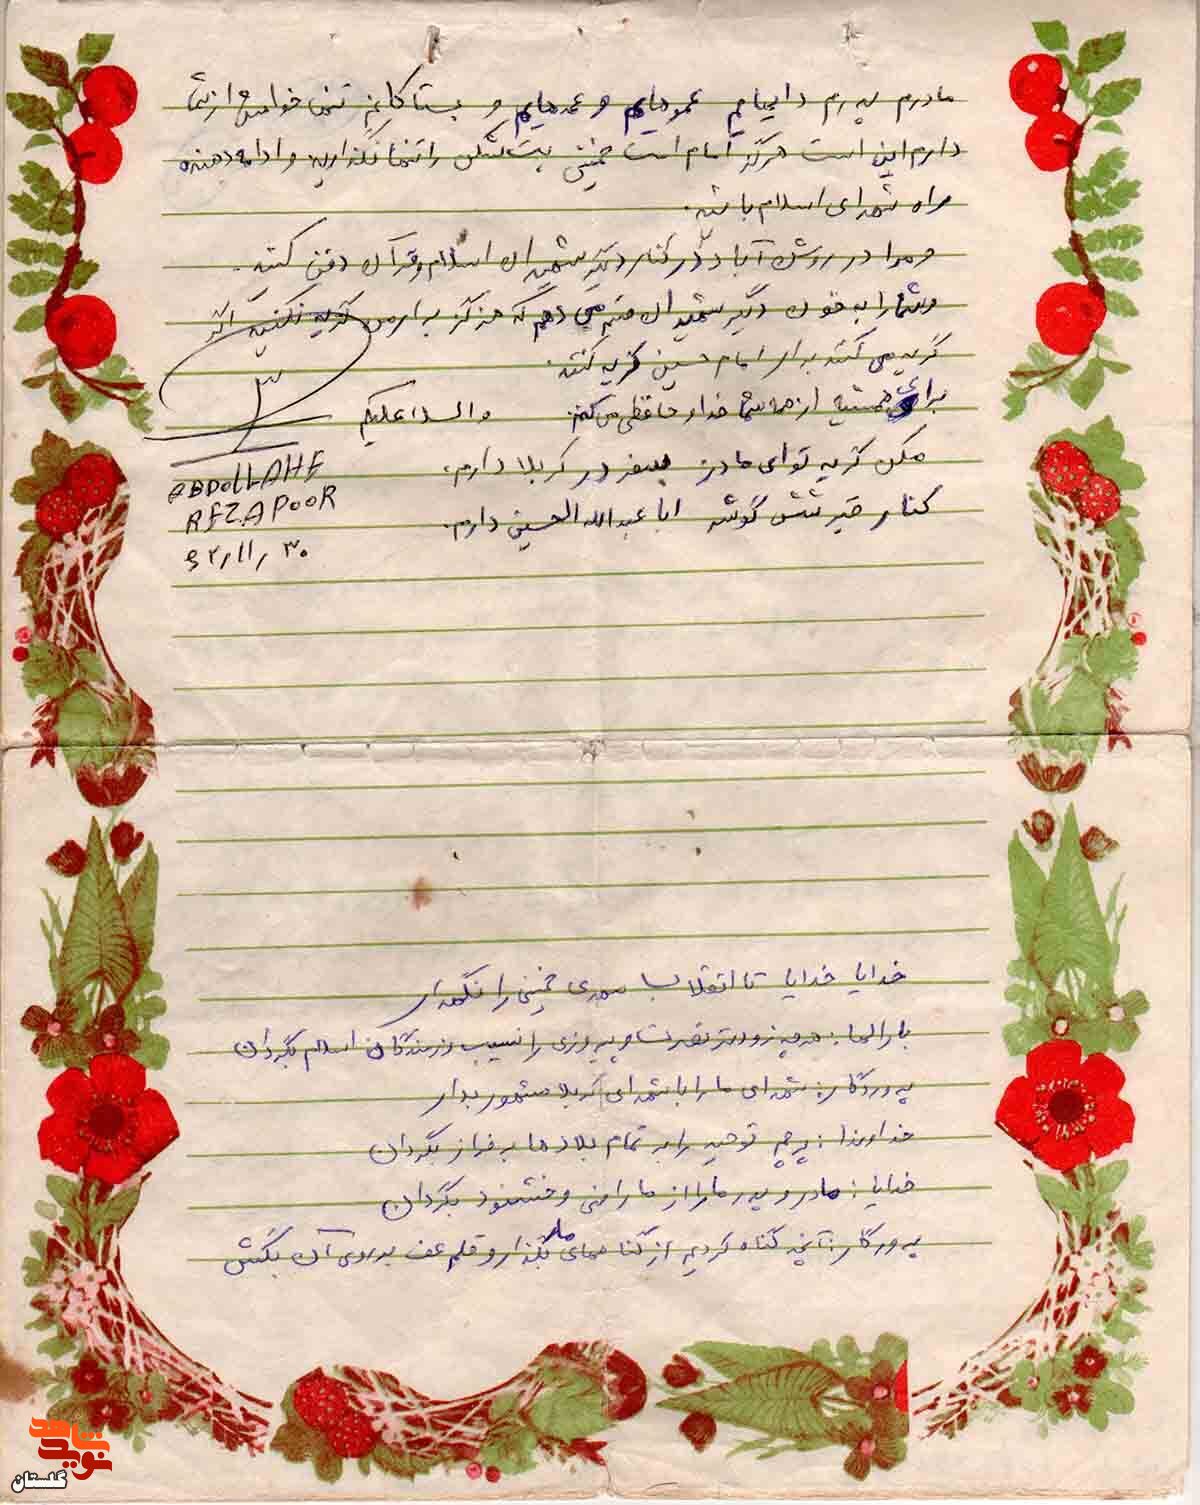 مادرم پدرم داییهایم عموهایم و عمه هایم و بستگانم تنها خواهش از شما
دارم این است هرگز امام است خمینی بت شکن را تنها نگذارید و ادامه دهنده
راه شهدای اسلام باشید.
و مرا در روشن آباد در کنار دیگر شهیدان اسلام و قرآن دفن کنید.
و شما را به خون دیگر شهیدان قسم می دهم که هرگز برای من گریه نکنید اگر
گریه می کنید برای امام حسین گریه کنید.
برای همیشه از همه شما خدا حافظی می کنم. والسلام علیکم
مکن گریه تو ای مادر سفر در کربلا دارم،
کنار قبر شش گوشه ابا عبدالله الحسین دارم.
ABDOLLAHE
REZAPOOR
۶۲/۱۱/۳۰
خدایا خدایا تا انقلاب مهدی خمینی را نگهدار
بارالها: هرچه زودتر نصرت و پیروزی را نسیب رزمندگان اسلام بگردان
پروردگار: شهدای ما را با شهدای کربلا محشور بدار
خداوندا: پرچم توحید را به تمام بلادها برفراز بگردان
خدایا: مادر و پدر ما را از ما راضی و خشنود بگردان
پرورگار: آنچه گناه کردیم از گناههای ما بگذار و قلم عف بر روی آن بکش
نوید شاهد
گلستان